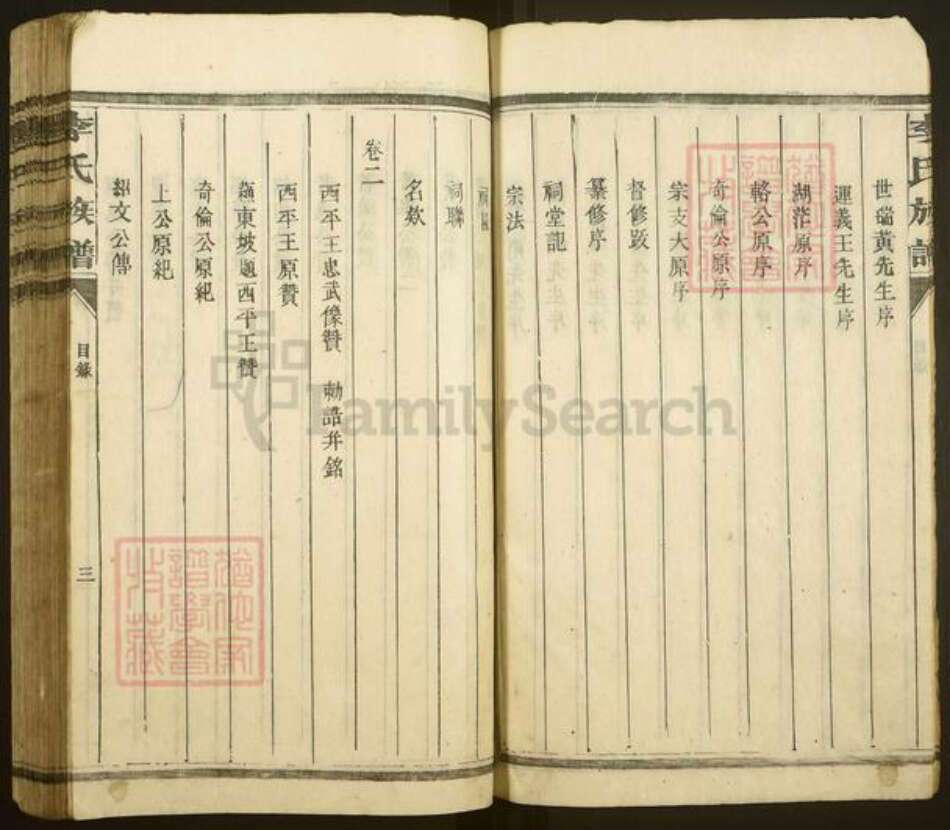 李氏族譜
世瑞黃先生序
運義王先生序
湖茫原序
輅公原序
奇倫公原序
宗支大原序
督修跋
纂修序
祠堂記
宗法
祠聯
名欵
卷二
西平王忠武像贊 勅誥并銘
西平王原贊
蘇東坡題西平王贊
奇倫公原紀
上公原紀
紹文公傳
李氏族譜
目錄
三
猶他家譜學會收藏
FamilySearch